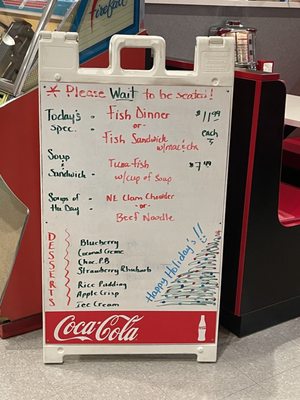 Fireball
* Please Wait to be seated!
Today's Spec. - Fish Dinner $11.99
or -
Fish Sandwich each
w/mac & chs
Soup & Sandwich - Tuna Fish $7.99
w/cup of Soup
Soups of the Day - NE Clam Chowder
- or -
Beef Noodle
DESSERTS
Blueberry
Coconut Creme
Choc. P.B
Strawberry Rhubarb
Rice Pudding
Apple Crisp
Ice Cream
Happy Holiday's!!
Coca-Cola